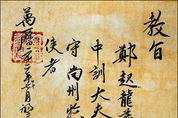 教旨
鄭起龍爲
中訓大夫
守尚州牧
使者
萬曆